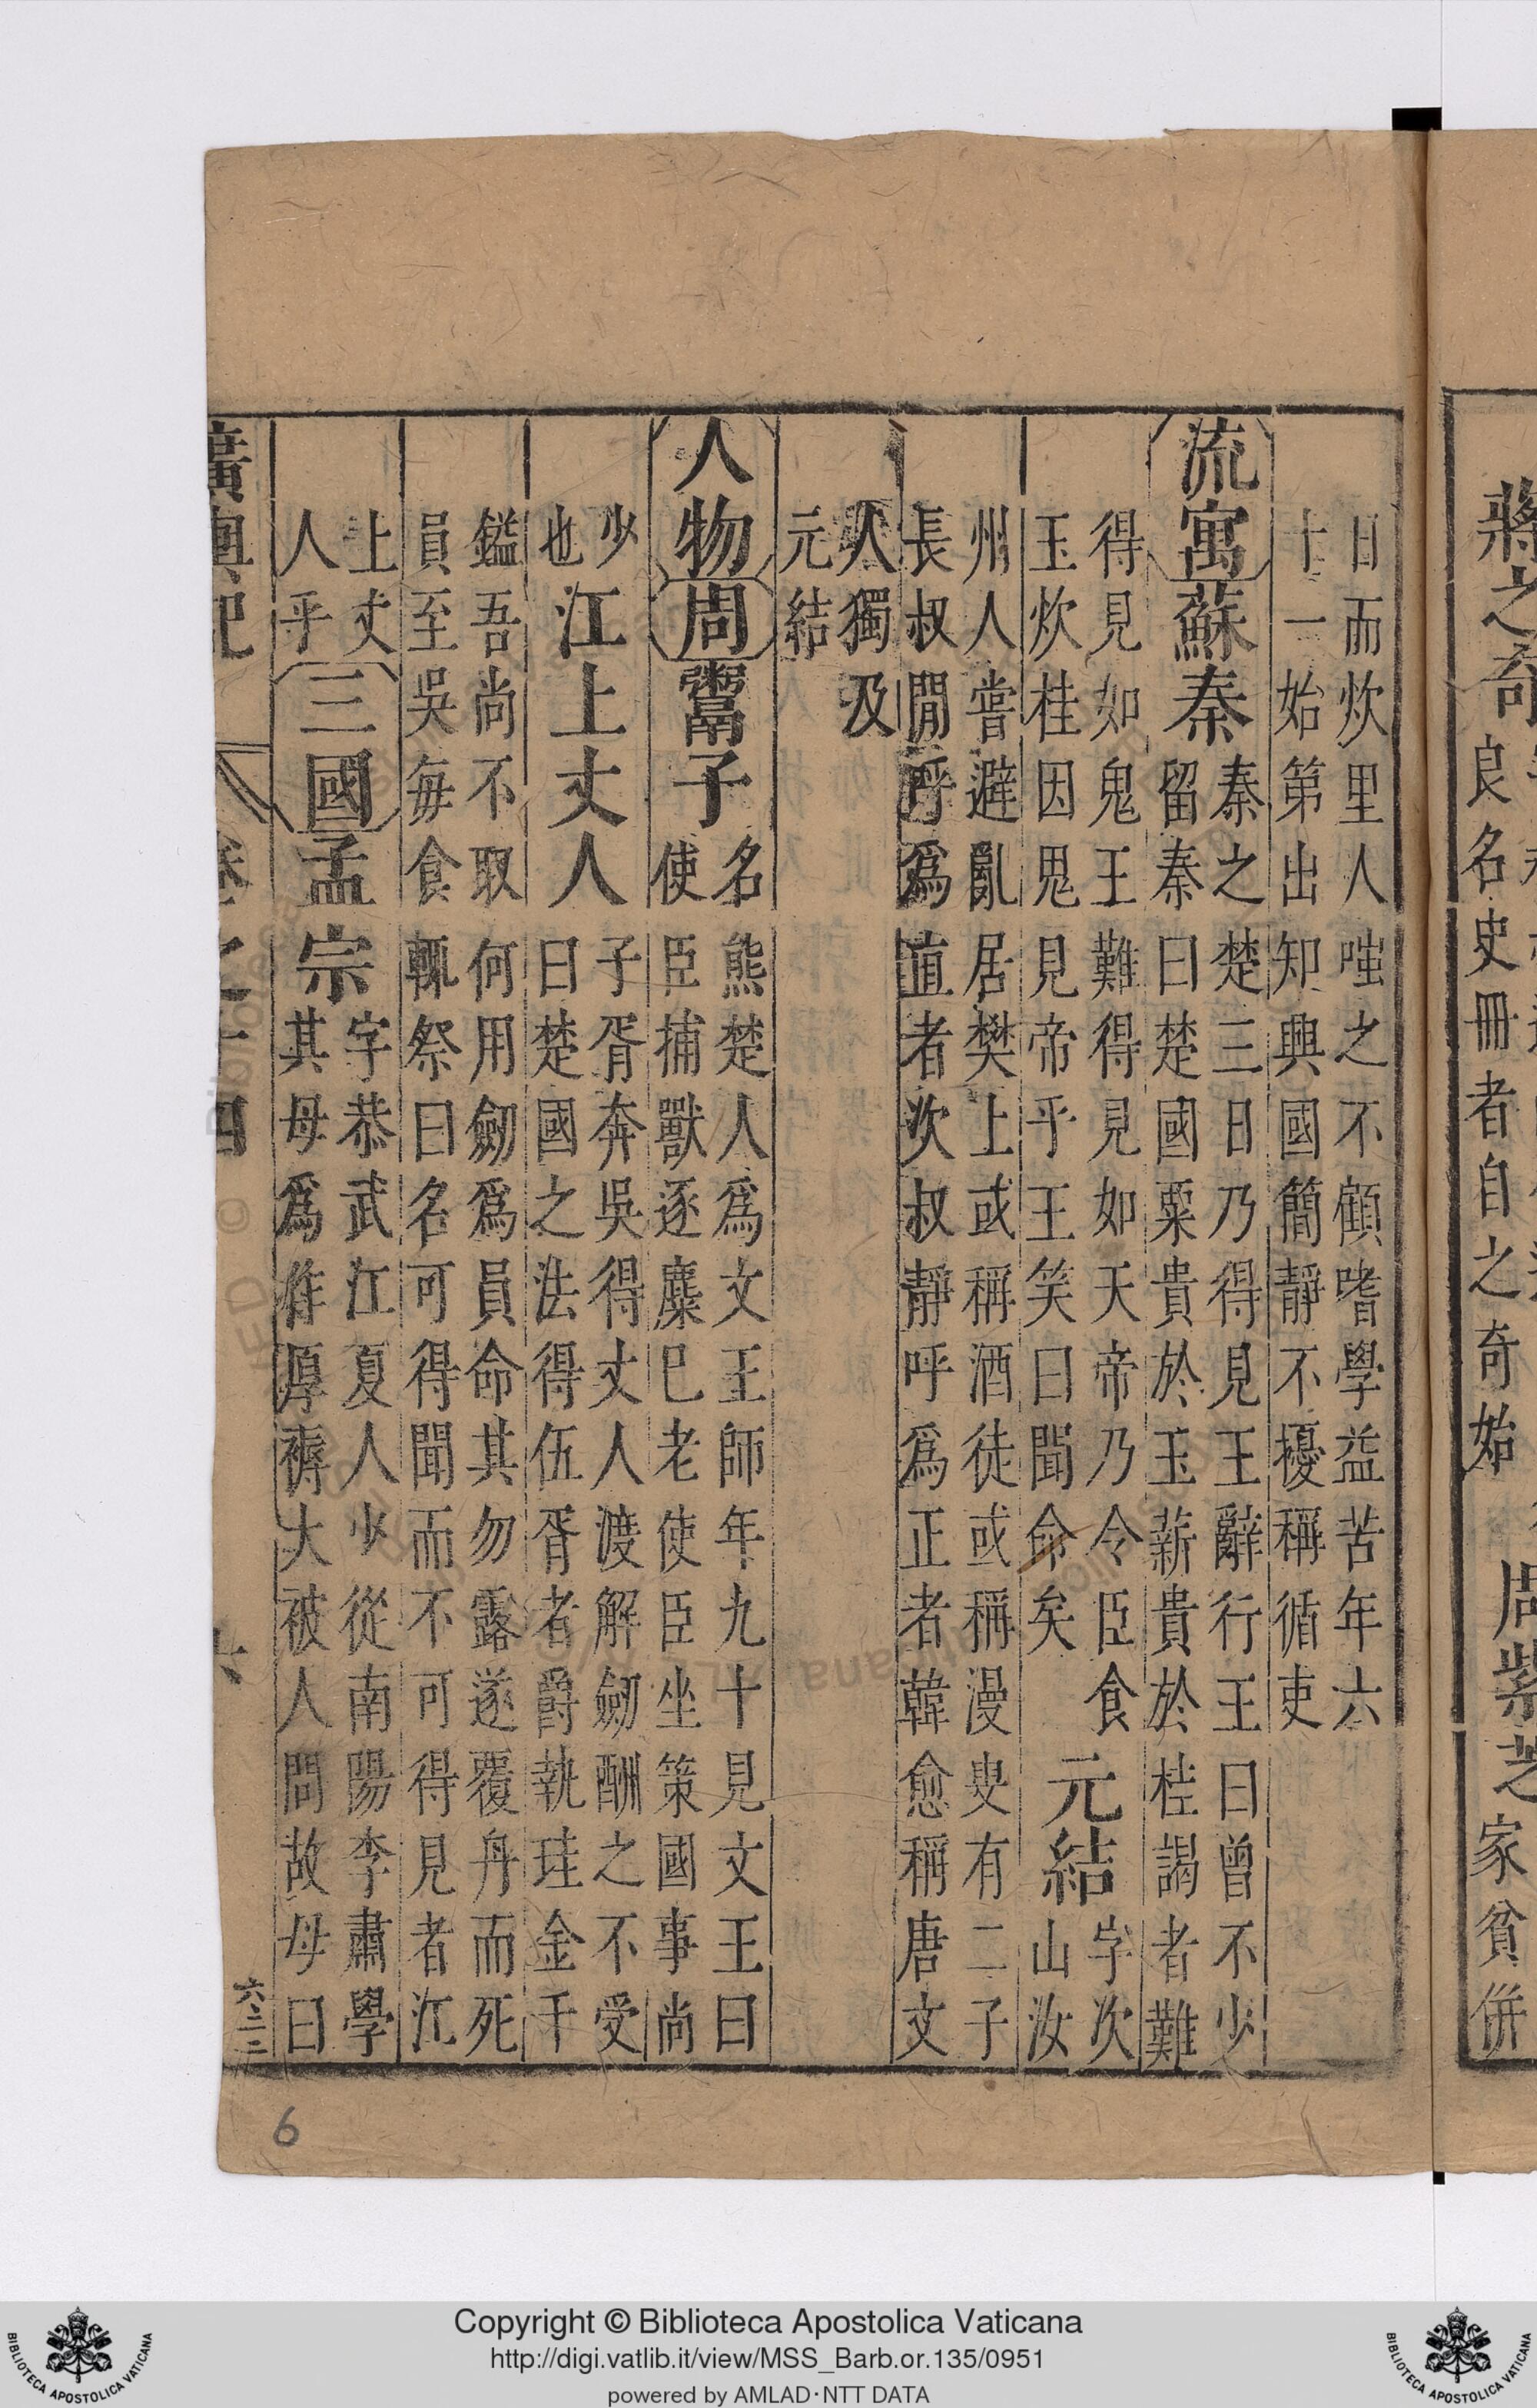 日而炊里人嗤之不顧嗜學益苦年六
十一始第出知興國簡靜不擾稱循吏
流寓蘇秦
秦之楚三日乃得見王辭行王曰曾不少
留秦曰楚國粟貴於玉薪貴於桂謁者難
得見如鬼王難得見如天帝乃令臣食
玉炊桂因鬼見帝乎王笑曰聞命矣
元結
字次
山汝
州人嘗避亂居樊上或稱酒徒或稱漫叟有二子
長叔閒呼爲直者次叔靜呼爲正者韓愈稱唐文
人獨及
元結
人物周鬻子
名熊楚人爲文王師年九十見文王曰
使臣捕獸逐麋已老使臣坐策國事尚
少
也
江上丈人
子胥奔吳得丈人渡解劒酬之不受
曰楚國之法得伍胥者爵執珪金千
鎰吾尚不取何用劒爲員命其勿露遂覆舟而死
員至吳每食輒祭曰名可得聞而不可得見者江
上丈
人乎
三國孟宗
字恭武江夏人少從南陽李肅學
其母爲作厚褥大被人問故母曰
廣輿記
卷之十四
六
六二三
蔣之奇
良名史冊者自之奇始
周紫芝
家貧併
6
Copyright © Biblioteca Apostolica Vaticana
http://digi.vatlib.it/view/MSS_Barb.or.135/0951
powered by AMLAD·NTT DATA
BIBLIOTECA APOSTOLICA VATICANA
BIBLIOTECA APOSTOLICA VATICANA